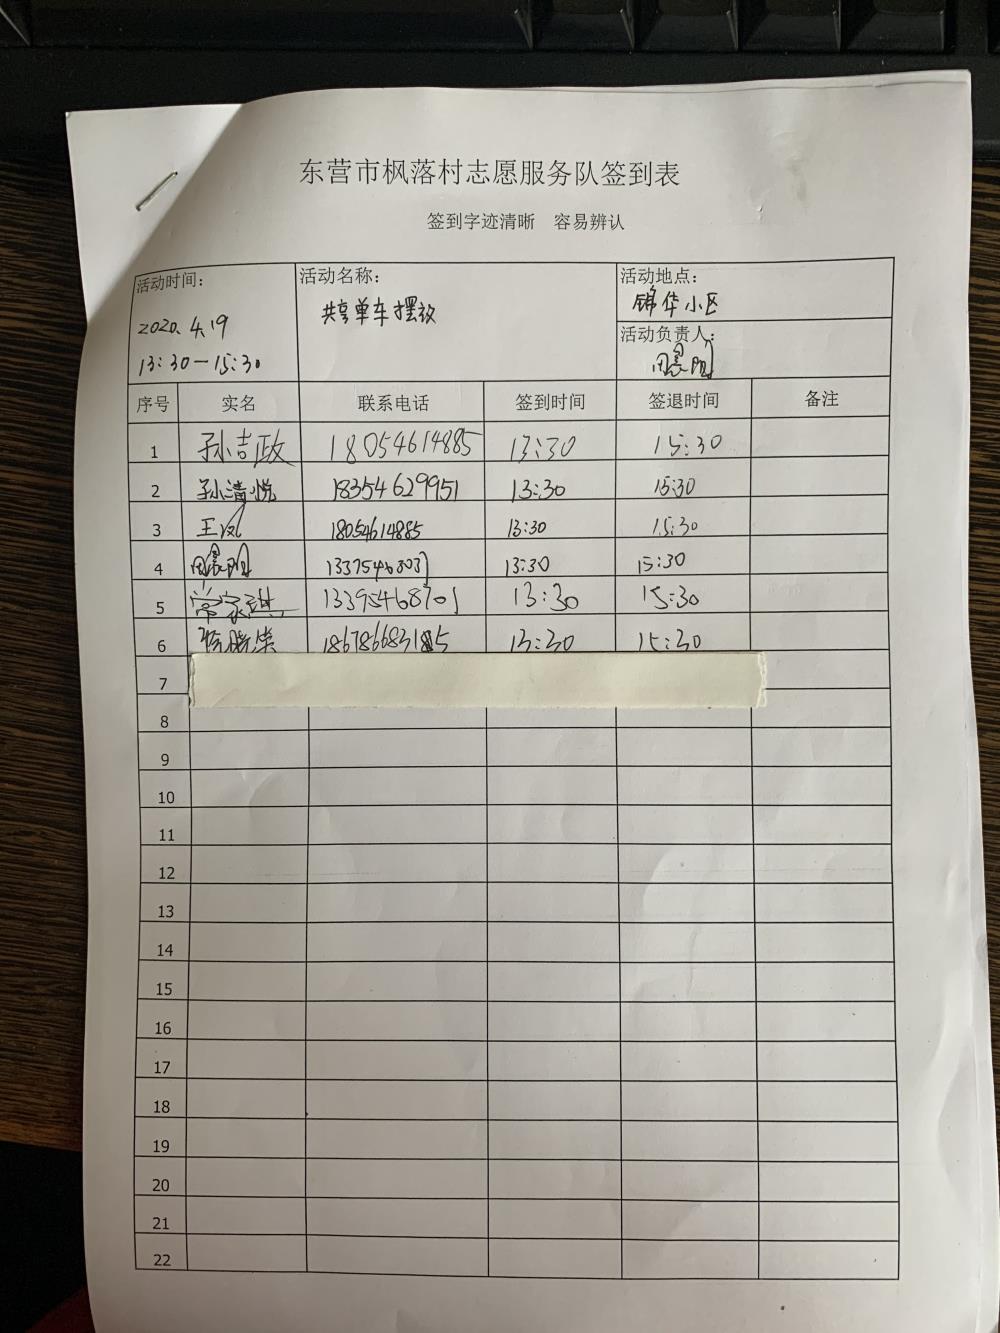 东营市枫落村志愿服务队签到表
签到字迹清晰 容易辨认
活动时间: 活动名称: 活动地点:
2020.4.19 共享单车摆放 锦华小区
13:30—15:30 活动负责人:
序号 实名 联系电话 签到时间 签退时间 备注
1 孙吉政 18054614885 13:30 15:30
2 孙清悦 18354629951 13:30 15:30
3 王凤 18054614885 13:30 15:30
4 13:30 15:30
5 常家琪 13395468701 13:30 15:30
6 13:30 15:30
7
8
9
10
11
12
13
14
15
16
17
18
19
20
21
22